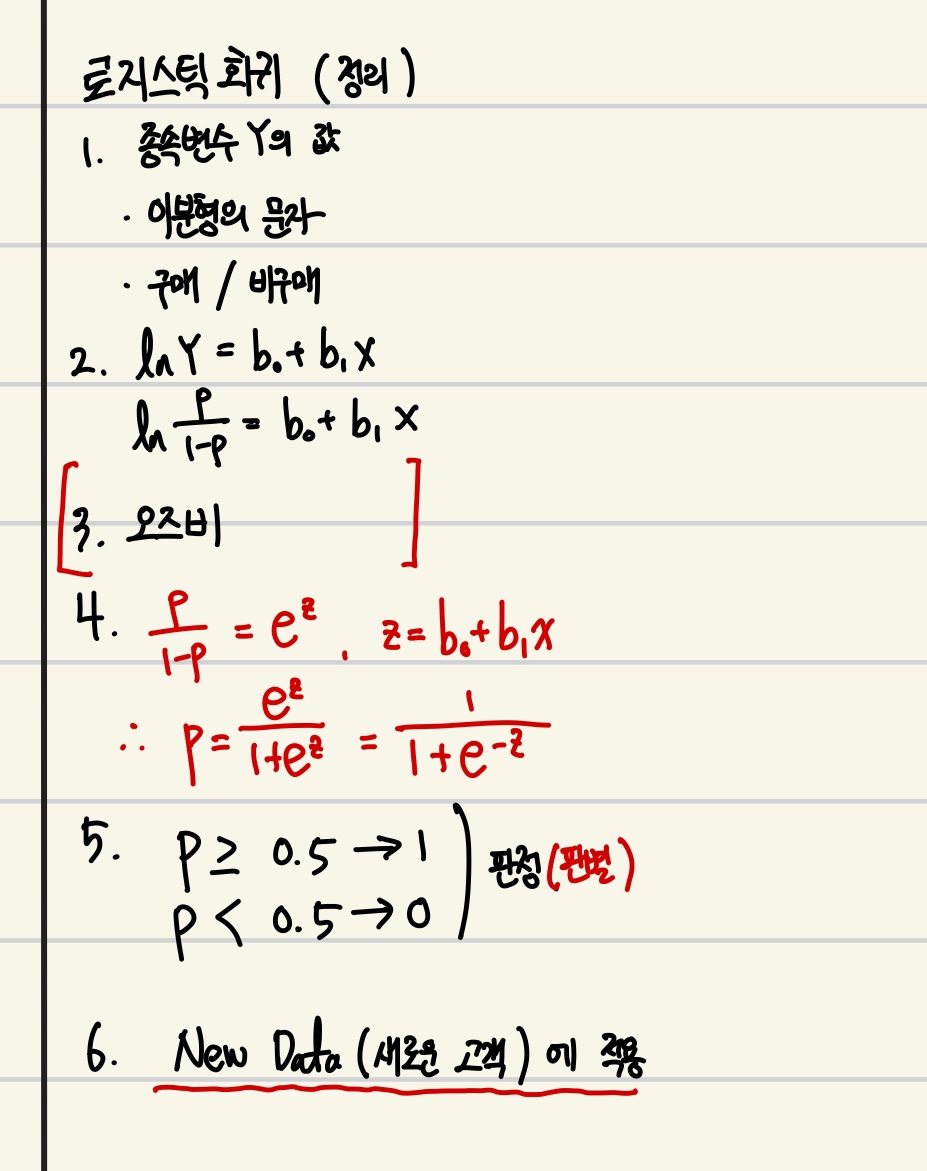 로지스틱 회귀 (정리)
1. 종속변수 Y의 값
· 이분형의 문자
· 구매 / 비구매
2. ln Y = b₀ + b₁ x
ln p/(1-p) = b₀ + b₁ x
[3. 오즈비 ]
4. p/(1-p) = e^z , z = b₀ + b₁x
∴ p = e^z/(1+e^z) = 1/(1+e^-z)
5. p ≥ 0.5 → 1
p < 0.5 → 0 ) 판정 (판별)
6. New Data (새로운 고객) 에 적용